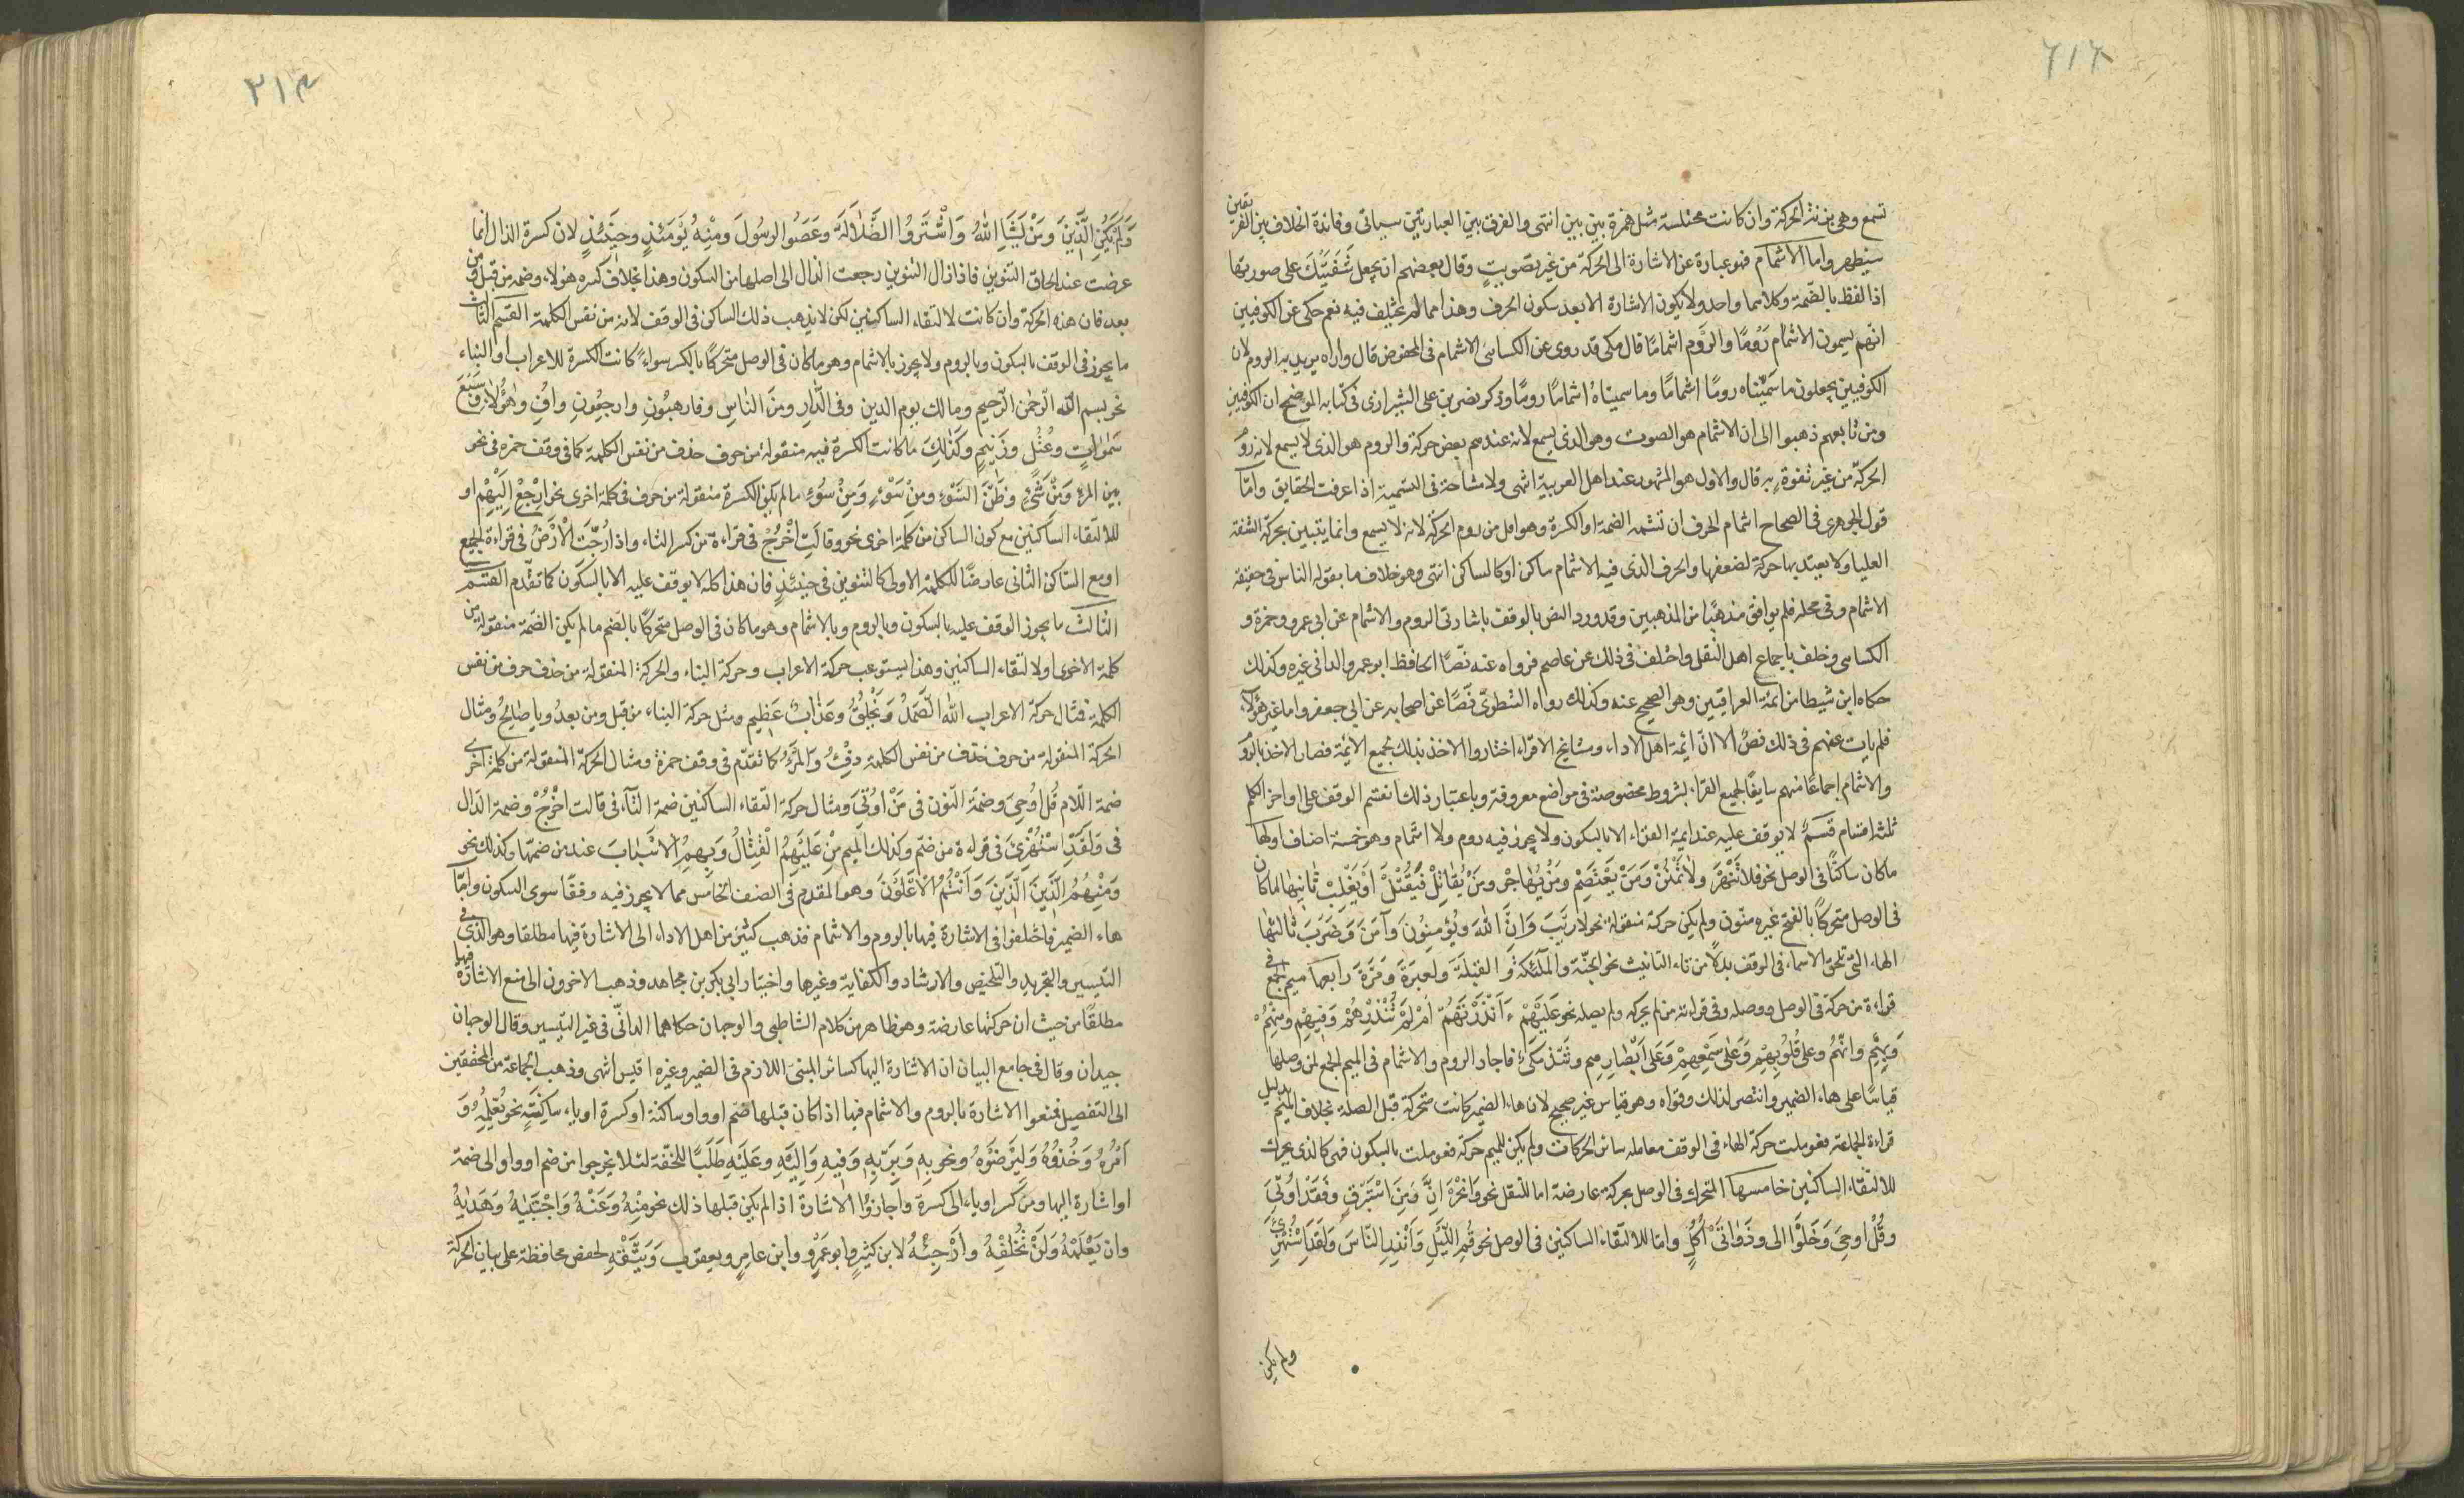 تسمع وهي بزنتها الحركة وان كانت مختلسة مثل همزة بين بين انتهى والفرق بين العبارتين سياتى وفائدة الخلاف بين الفريقين
سيظهر واما الاشمام فهو عبارة عن الاشارة الى الحركة من غير تصويت وقال بعضهم ان يجعل شَفَتَيْكَ على صورتها
اذا لفظ بالضّمة وكلاهما واحد ولا يكون الاشارة الا بعد سكون الحرف وهذا مما لم يختلف فيه نعم حكى عن الكوفيين
انّهم يسمون الاشمام رَوْمًا والرَّوم اشمامًا قال مكى قد روى عن الكسائى الاشمام فى المخفوض قال واراه يريد به الروم لان
الكوفيين يجعلون ما سَمَّيْناه رومًا اشمامًا وما سميناه اشمامًا رومًا وذكر نصر بن على الشيرازى فى كتابه الموضح ان الكوفيين
ومن تابعهم ذهبوا الى ان الاشمام هو الصوت وهو الذى يسمع لانه عندهم بعض حركة والروم هو الذى لا يسمع لانه روم
الحركة من غير تفوّه به قال والاول هو المشهور عند اهل العربية انتهى ولا مشاحة فى التسمية اذا عرفت الحقايق وامّا
قول الجوهرى فى الصحاح اشمام الحرف ان تشمه الضمة او الكسرة وهو اقل من روم الحركة لانه لا يسمع وانما يتبين بحركة الشفة
العليا ولا يعتد بها حركة لضعفها والحرف الذى فيه الاشمام ساكن او كالساكن انتهى وهو خلاف ما يقوله الناس فى حقيقة
الاشمام وفى محله فلم يوافق مذهبًا من المذهبين وقد ورد النص بالوقف باشارتى الروم والاشمام عن ابى عمرو وحمزة و
الكسائى وخلف باجماع اهل النقل واختلف فى ذلك عن عاصم فرواه عنه نصّا الحافظ ابو عمرو الدانى وغيره وكذلك
حكاه ابن شيطا من ائمة العراقيين وهو الصحيح عنه وكذلك رواه الشطوى نصًّا عن اصحابه عن ابى جعفر واما غير هؤلاء
فلم يات عنهم فى ذلك نصٌ الا انّ ائمة اهل الاداء ومشايخ الاقراء اختاروا الاخذ بذلك لجميع الائمة فصار الاخذ بالروم
والاشمام اجماعًا منهم سايغًا لجميع القراء بشروط مخصوصة فى مواضع معروفة وباعتبار ذلك انقسم الوقف على اواخر الكلم
ثلثة اقسام قسمٌ لا يوقف عليه عند ايمة القراء الا بالسكون ولا يجوز فيه روم ولا اشمام وهو خمسة اصناف اولها
ما كان ساكنًا فى الوصل نحو فلا تَنْهَرْ ولا تَمْنُنْ وَمَنْ يَعْتَصِمْ وَمَنْ يُهاجِرْ ومَنْ يُقاتِلْ فَيُقْتَلْ اَوْ يَغْلِبْ ثانيها ما كان
فى الوصل متحركًا بالفتح غير منون ولم يكن حركة منقولة نحو لا رَيْبَ وَاِنَّ اللهَ ويُؤْمِنُونَ وَآمَنَ وَضَرَبَ ثالثها
الهاء التى تلحق الاسماء فى الوقف بدلًا من تاء التانيث نحو الجنّة والملٰئكة والقِبْلَة ولَعِبْرَة وَمَرَّة رابعها ميم الجمع فى
قراءة من حركه فى الوصل ووصله وفى قراءة من لم يحركه ولم يصله نحو عَلَيْهِمْ ءَاَنْذَرْتَهُمْ اَمْ لَمْ تُنْذِرْهُمْ وَفيهِمْ وَمِنْهُمْ
وَبِهِمْ وانّهُمْ وعلى قُلُوبِهِمْ وَعَلى سَمْعِهِمْ وَعَلى اَبْصارِهِم وشذ مكى فاجاز الروم والاشمام فى الميم الجمع لمن وصلها
قياسًا على هاء الضمير وانتصر لذلك وقواه وهو قياس غير صحيح لان هاء الضمير كانت متحركة قبل الصلة بخلاف الميم بدليل
قراءة الجماعة فعوملت حركة الهاء فى الوقف معاملة سائر الحركات ولم يكن للميم حركة فعوملت بالسكون فهى كالذى يحرك
لالتقاء الساكنين خامسها المتحرك فى الوصل بحركة عارضة اما للنقل نحو وَانْحَرْ اِنَّ وَمِنْ اِسْتَبْرَقٍ وفَقَدْ اُوتِىَ
وقُلْ اوحِىَ وَخَلَوْا الى وذَوَاتَىْ اُكُلٍ واما لالتقاء الساكنين فى الوصل نحو قُمِ الَّيْلَ وَاَنْذِرِ النّاسَ وَلَقَدِ اسْتُهْزِئَ
ولم يكن
٣١٣
وَلَمْ يَكُنِ الَّذِينَ ومَنْ يَشَاِ اللهُ وَاشْتَرَوُا الضَّلالَةَ وعَصَوُا الرسُولَ ومنه يَوْمَئذٍ وحِينَئذٍ لان كسرة الذال انما
عرضت عند الحاق التنوين فاذا زال التنوين رجعت الذال الى اصلها من السكون وهذا بخلاف كسرة هؤلاء وضمة من قبل ومن
بعد فان هذه الحركة وان كانت لالتقاء الساكنين لكن لا يذهب ذلك الساكن فى الوقف لانه من نفس الكلمة القسم الثانى
ما يجوز فى الوقف بالسكون وبالروم ولا يجوز بالاشمام وهو ما كان فى الوصل متحركًا بالكسر سواءً كانت الكسرة للاعراب او البناء
نحو بسم اللّه الرّحمٰن الرّحيم ومالك يوم الدين وفى الدّارِ ومنَ الناسِ وفارهبُونِ وارجِعُونِ وافٍ وهٰؤلاءِ وسَبْعَ
سَمٰوٰاتٍ وعُتُلٍ وزَنيمٍ وكَذلِكَ ما كانت الكسرة فيه منقولة من حرف حذف من نفس الكلمة كما فى وقف حمزة فى نحو
بين المرءِ وَمِنْ شَىْءٍ وظَنَّ السَّوْءِ ومِنْ سَوْءٍ وَمِنْ سُوءٍ ما لم يكن الكسرة منقولة من حرف فى كلمة اخرى نحو ارْجِعْ اِلَيْهِمْ او
لالتقاء الساكنين مع كون الساكن من كلمة اخرى نحو وقالَتِ اخْرُجْ فى قراءة من كسر التاء واذا رُجَّتِ الْاَرْضُ فى قراءة الجميع
او مع الساكن الثانى عارضًا للكلمة الاولى كالتنوين فى حينئذٍ فان هذا كله لا يوقف عليه الا بالسكون كما تقدّم القسم
الثالث ما يجوز الوقف عليه بالسكون وبالروم وبالاشمام وهو ما كان فى الوصل متحركًا بالضم ما لم يكن الضّمة منقولة من
كلمة الاخرى او لالتقاء الساكنين وهذا يستوعب حركة الاعراب وحركة البناء والحركة المنقولة من حذف حرف من نفس
الكلمة فمثال حركة الاعراب اللّٰه الصَّمَدُ وَيَخْلُقُ وعَذٰابٌ عَظِيم ومثل حركة البناء من قبل ومن بعدُ ويا صٰالِحُ ومثال
الحركة المنقولة من حرف حذف من نفس الكلمة دِفْءُ والْمَرْءُ كما تقدّم فى وقف حمزة ومثال الحركة المنقولة من كلمة اخرى
ضمة اللّام قُل اُوحِىَ وضمّة النّون فى مَنْ اُوتِىَ ومثال حركة التقاء الساكنين ضمة التآء فى قالت اخْرُجْ وضمة الدّال
فى وَلَقَدِ اسْتُهْزِئَ فى قراءة من ضمّ وكذلك الميم مِنْ عَلَيْهِمُ الْقِتٰالُ وَبِهِمُ الْاَسْبٰابَ عند من ضمّها وكذلك نحو
وَمِنْهُمُ الَّذِينَ وَاَنْتُمُ الْاَعْلَوْنَ وهو المقدم فى الصنف الخامس مما لا يجوز فيه وقفًا سوى السكون وامّا
هاء الضمير فاختلفوا فى الاشارة فيها بالروم والاشمام فذهب كثيرٌ من اهل الاداء الى الاشارة فيها مطلقا وهو الذى فى
التيسير والتجريد والتلخيص والارشاد والكفاية وغيرها واختيار ابى بكر بن مجاهد وذهب الاخرون الى منع الاشارة فيها
مطلقًا من حيث ان حركتها عارضة وهو ظاهر من كلام الشاطبى والوجهان حكاهما الدانىّ فى غير التيسير وقال الوجهان
جيدان وقال فى جامع البيان ان الاشارة اليها كسائر المبنى اللازم فى الضمير وغيره اقيس انتهى وذهب جماعة من المحققين
الى التفصيل فمنعوا الاشارة بالروم والاشمام فيها اذا كان قبلها ضم او واو ساكنة او كسرة او ياء ساكنةٍ نحو يُعَلِّمُهُ وَ
اَمْرُهُ وَخُذوهُ وَلِيَرْضَوْهُ ونحو بِهِ وَبِرَبِّهِ وَفيهِ وَاِلَيْهِ وعَلَيْهِ طَلَبًا للخفّة لئلا يخرجوا من ضم او واو الى ضمة
او اشارة اليها ومن كسر او ياء الى كسرة واجازوا الاشارة اذا لم يكن قبلها ذلك نحو مِنْهُ وَعَنْهُ وَاجْتَبٰيهُ وَهَدٰيهُ
وان يَعْلَمَهُ وَلَنْ تُخْلَفَهُ وارْجِئْهُ لابن كثيرٍ وابو عَمْرٍو وابن عامرٍ ويعقوب وَيَتَّقْهِ لحفص محافظة على بيان الحركة